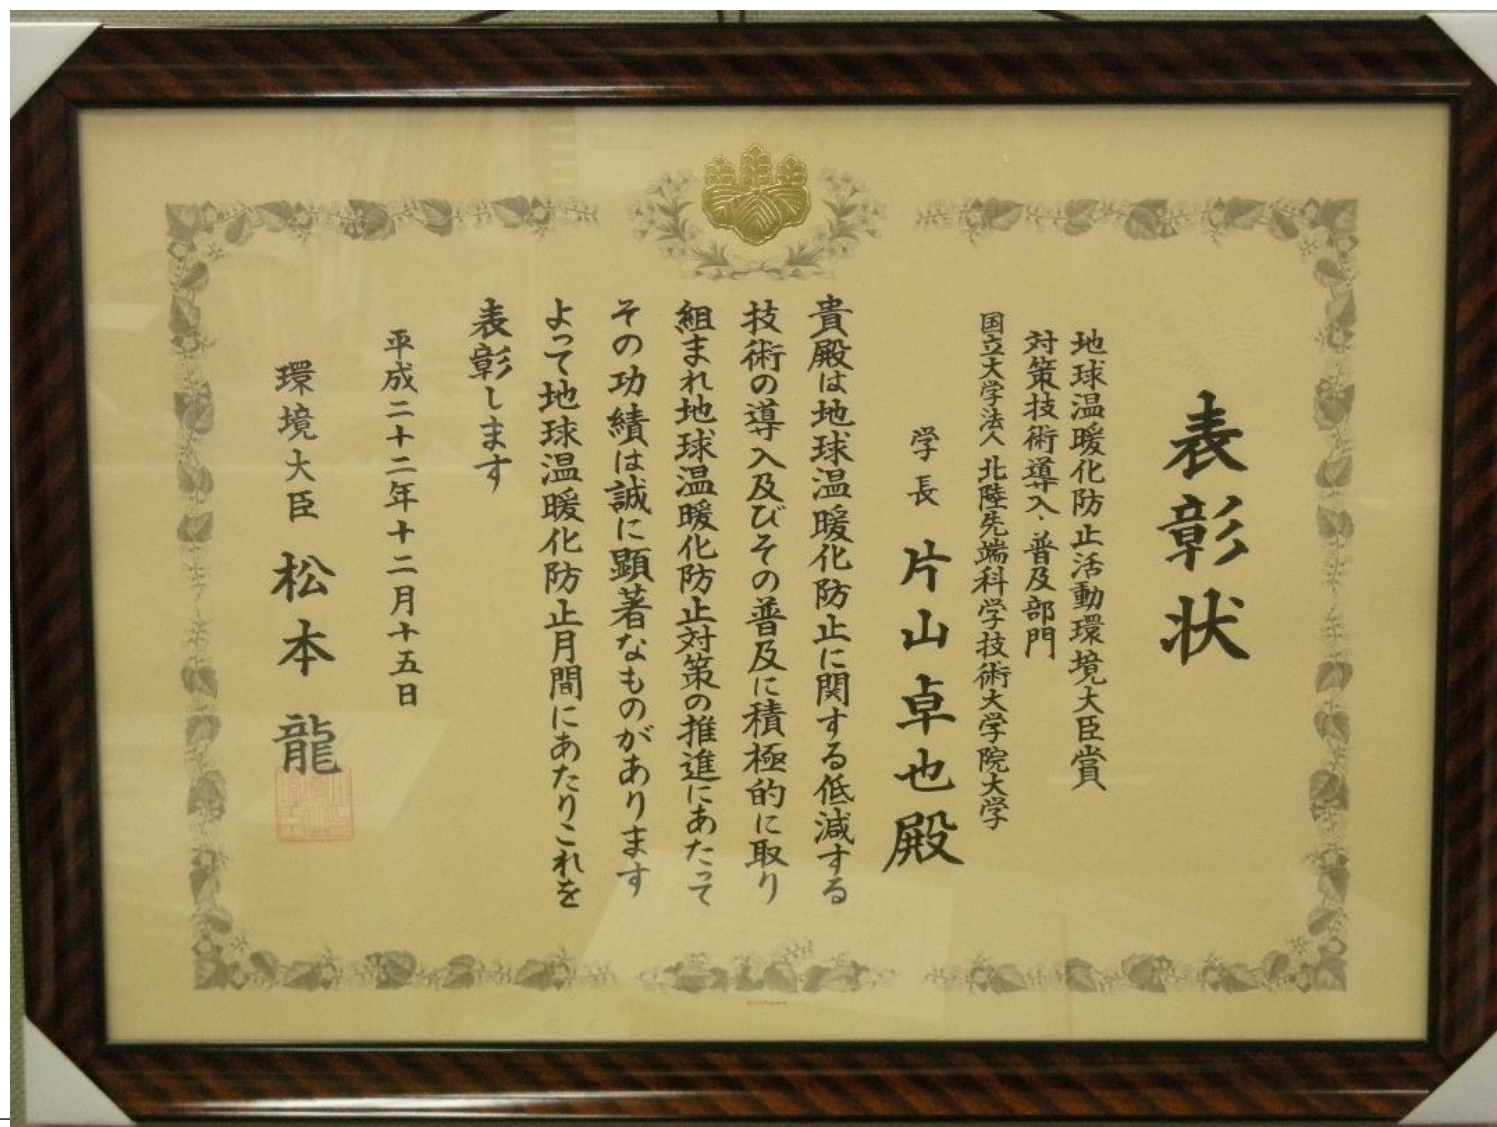 表彰状
地球温暖化防止活動環境大臣賞
対策技術導入・普及部門
国立大学法人 北陸先端科学技術大学院大学
学長 片山卓也殿
貴殿は地球温暖化防止に関する低減する
技術の導入及びその普及に積極的に取り
組まれ地球温暖化防止対策の推進にあたって
その功績は誠に顕著なものがあります
よって地球温暖化防止月間にあたりこれを
表彰します
平成二十二年十二月十五日
環境大臣 松本龍